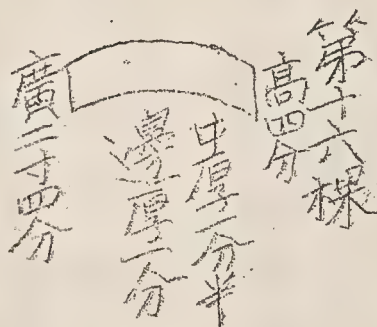 第十六棵
高四分
中厚二分半
邊厚二分
廣二寸四分